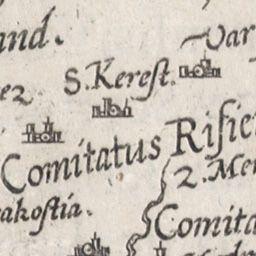 and.
Var
S. Kerest.
ez
Comitatus Risie
2. Mer
akostia.
Comita